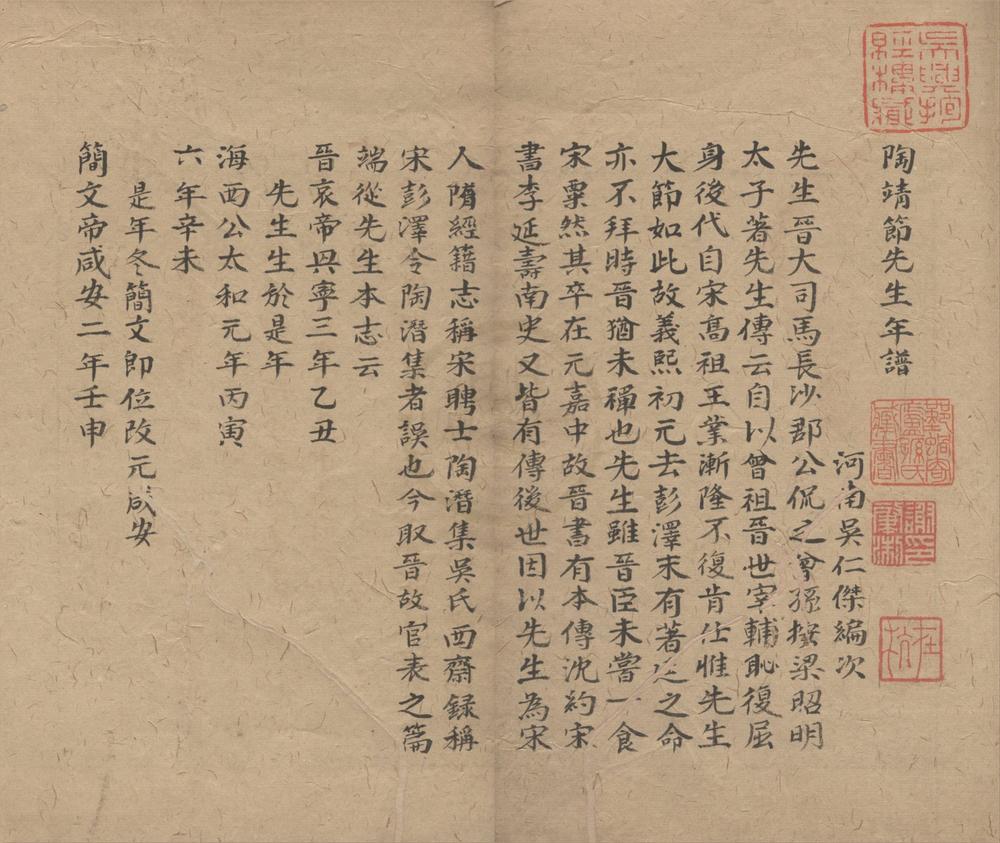 陶靖節先生年譜
河南吳仁傑編次
先生晉大司馬長沙郡公侃之曾孫按梁昭明
太子著先生傳云自以曾祖晉世宰輔恥復屈
身後代自宋髙祖王業漸隆不復肯仕惟先生
大節如此故義熙初元去彭澤末有著作之命
亦不拜時晉猶未禪也先生雖晉臣未嘗一食
宋粟然其卒在元嘉中故晉書有本傳沈約宋
書李延壽南史又皆有傳後世因以先生為宋
人隋經籍志稱宋聘士陶潛集吳氏西齋録稱
宋彭澤令陶潛集者誤也今取晉故官表之篇
端從先生本志云
晉哀帝興寧三年乙丑
先生生於是年
海西公太和元年丙寅
六年辛未
是年冬簡文即位改元咸安
簡文帝咸安二年壬申